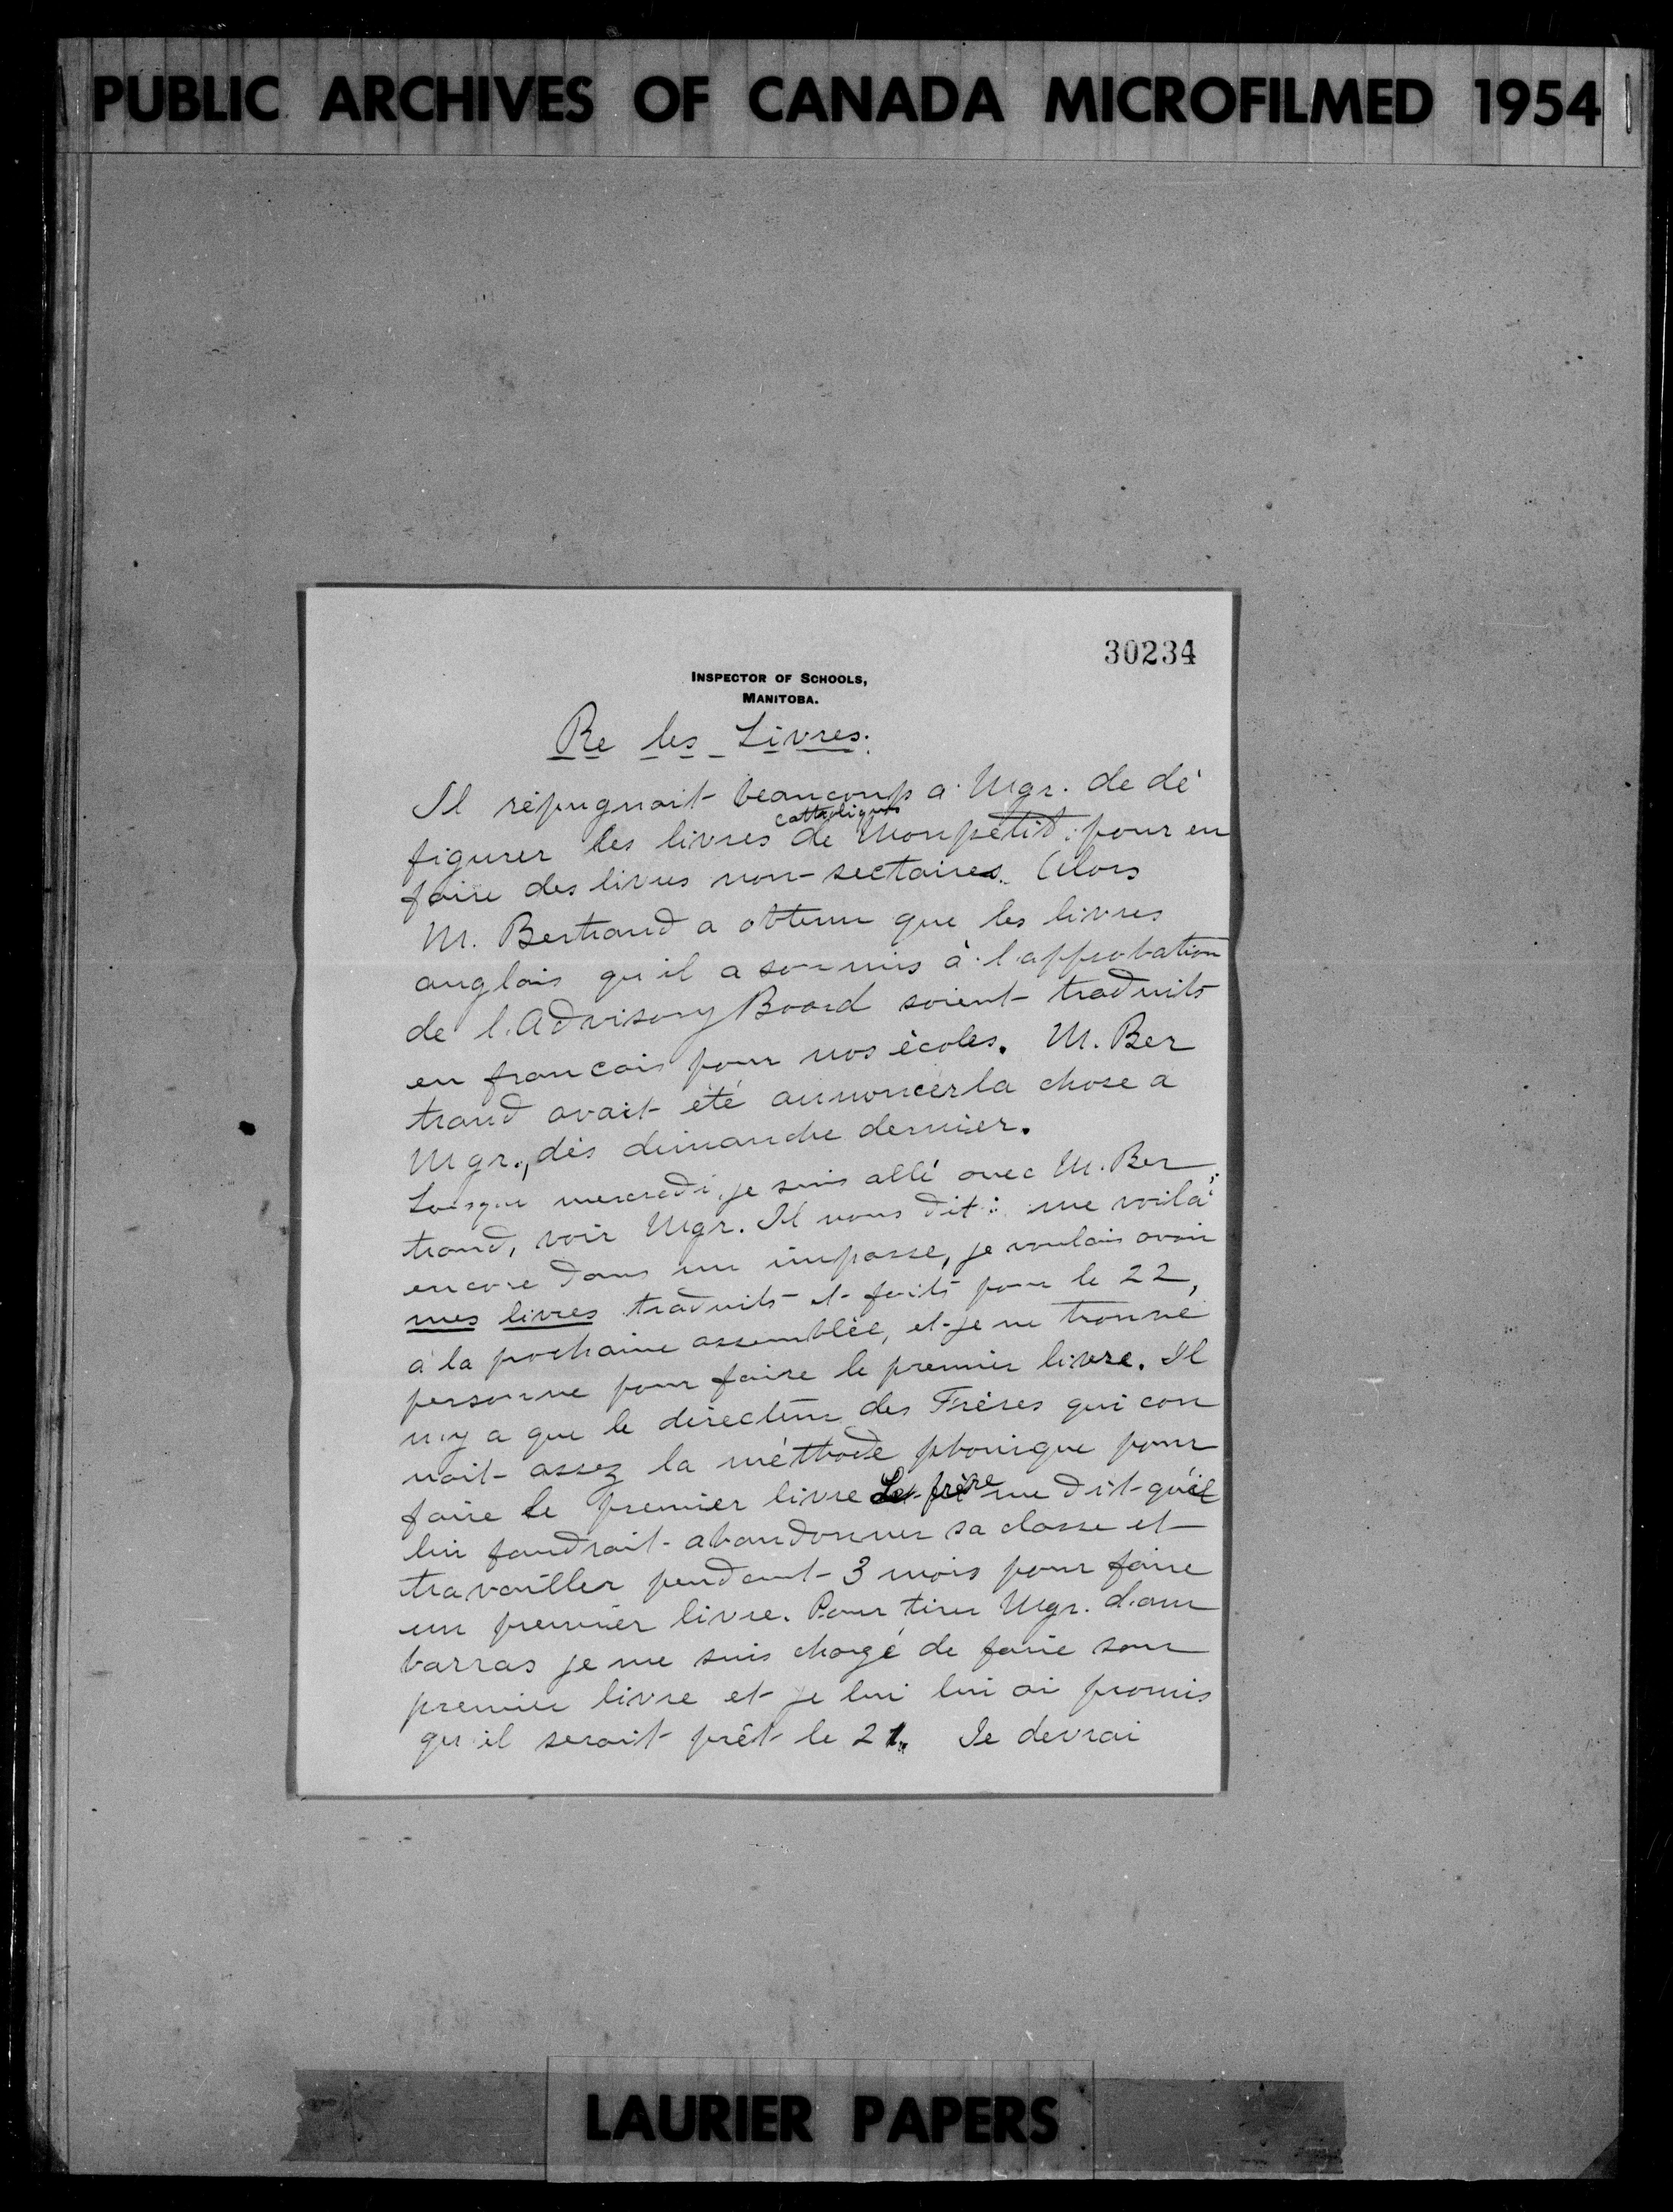 PUBLIC ARCHIVES OF CANADA MICROFILMED 1954
30234
INSPECTOR OF SCHOOLS,
MANITOBA.
Re les Livres.
Il répugnait beaucoup a Mgr. de dé
catholiques
figurer les livres de Monpetit pour en
faire des livres non-sectaires. Alors
M. Bertrand a obtenu que les livres
anglais qu'il a soumis à l'approbation
de l'Advisory Board soient traduits
en francais pour nos écoles. M. Ber
trand avait été annoncer la chose a
Mgr., dès dimanche dernier.
Lorsque mercredi, je suis allé avec M. Ber
trand, voir Mgr. Il nous dit: me voilà
encore dans un impasse, je voulais avoir
mes livres traduits et faits pour le 22,
à la prochaine assemblée, et je ne trouve
personne pour faire le premier livre. Il
n'y a que le directeur des Frères qui con
nait assez la méthode phonique pour
faire le premier livre Le frère me dit qu'il
lui faudrait abandonner sa classe et
travailler pendant 3 mois pour faire
un premier livre. Pour tirer Mgr. d'em
barras je me suis chargé de faire son
premier livre et je lui lui ai promis
qu'il serait prêt le 21. Je devrai
LAURIER PAPERS